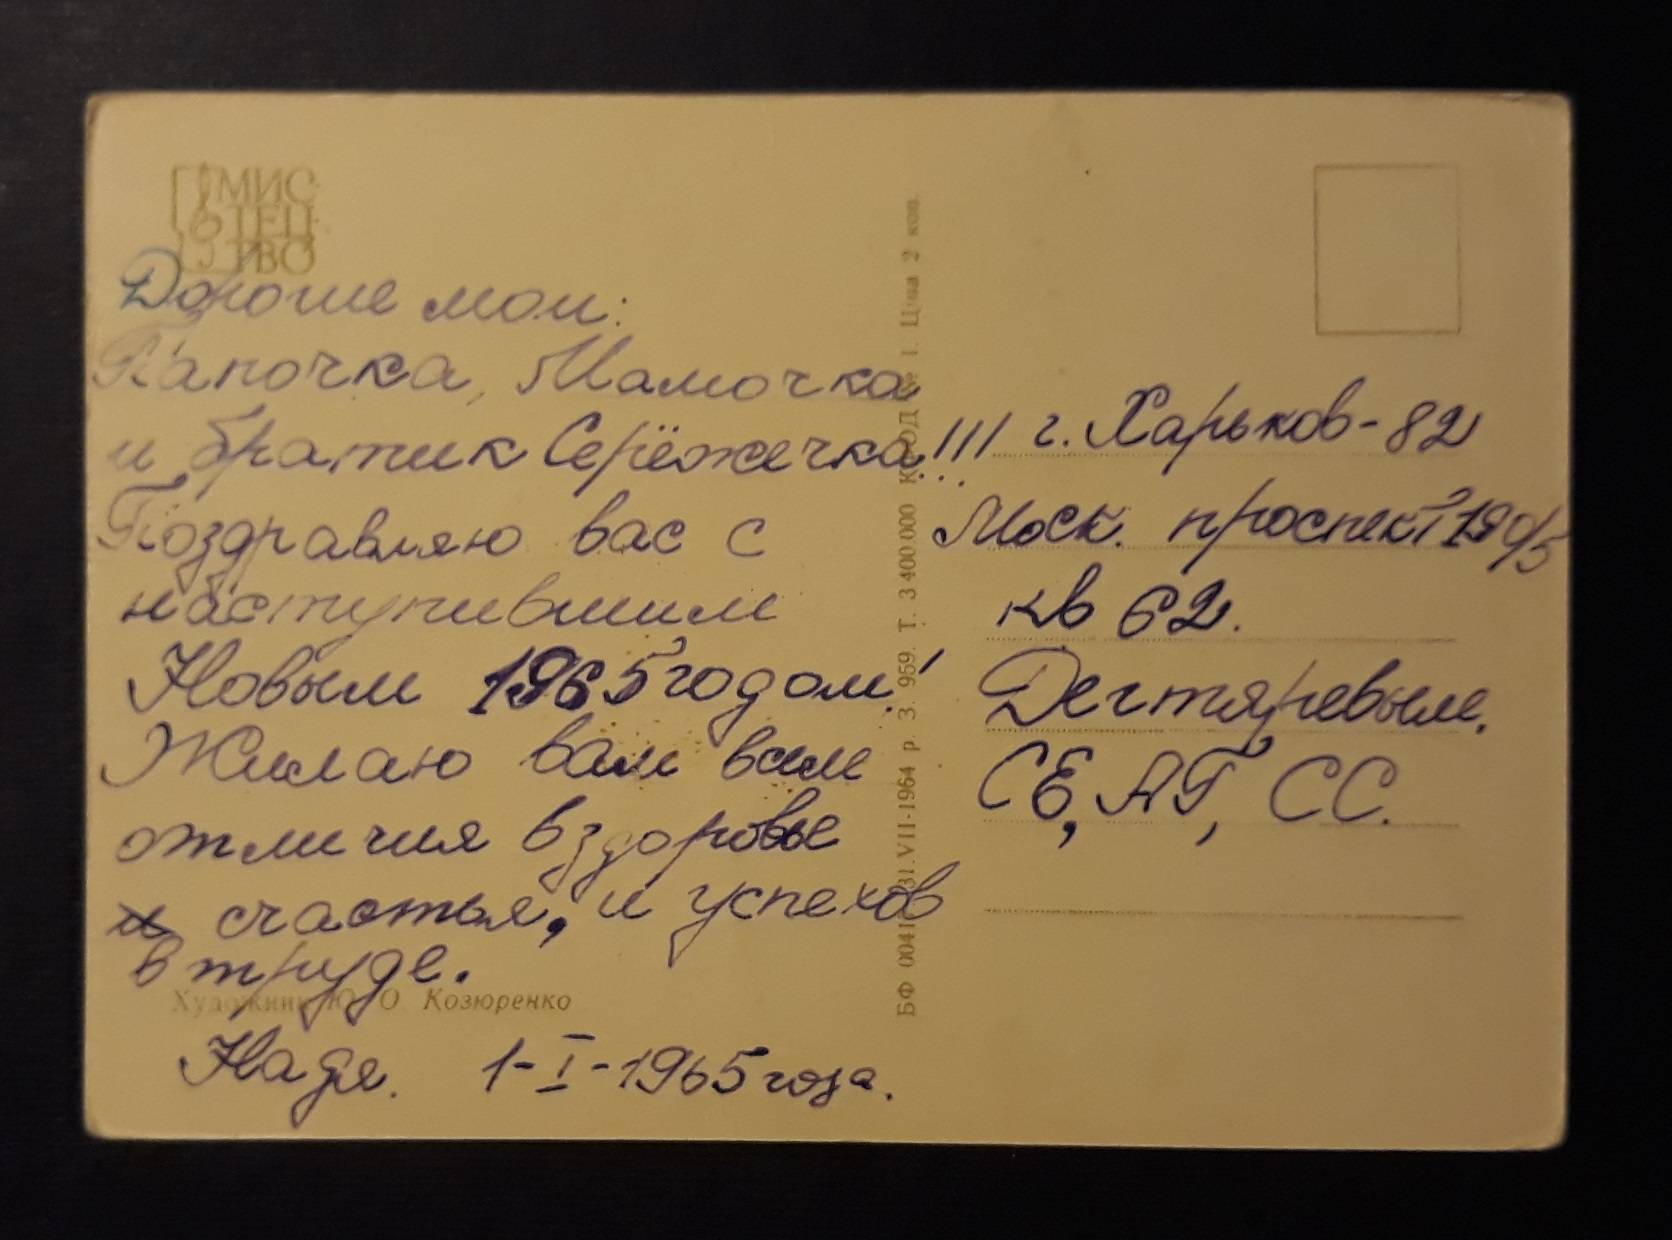 МИС
ТЕЦ
ТВО
Дорогие мои:
Папочка, Мамочка
и братик Серёжечка!!!
Поздравляю вас с
наступившим
Новым 1965 годом!
Желаю вам всем
отличия в здоровье
и счастья, и успехов
в труде.
Художник Ю. О. Козюренко
Надя. 1-I-1965 года.
БФ 31.VII-1964 р. З. 959. Т. 3 400 000 1. Ціна 2 коп.
г. Харьков-82
Моск. проспект 190/5
кв 62.
Дегтяревым.
СЕ, АГ, СС.